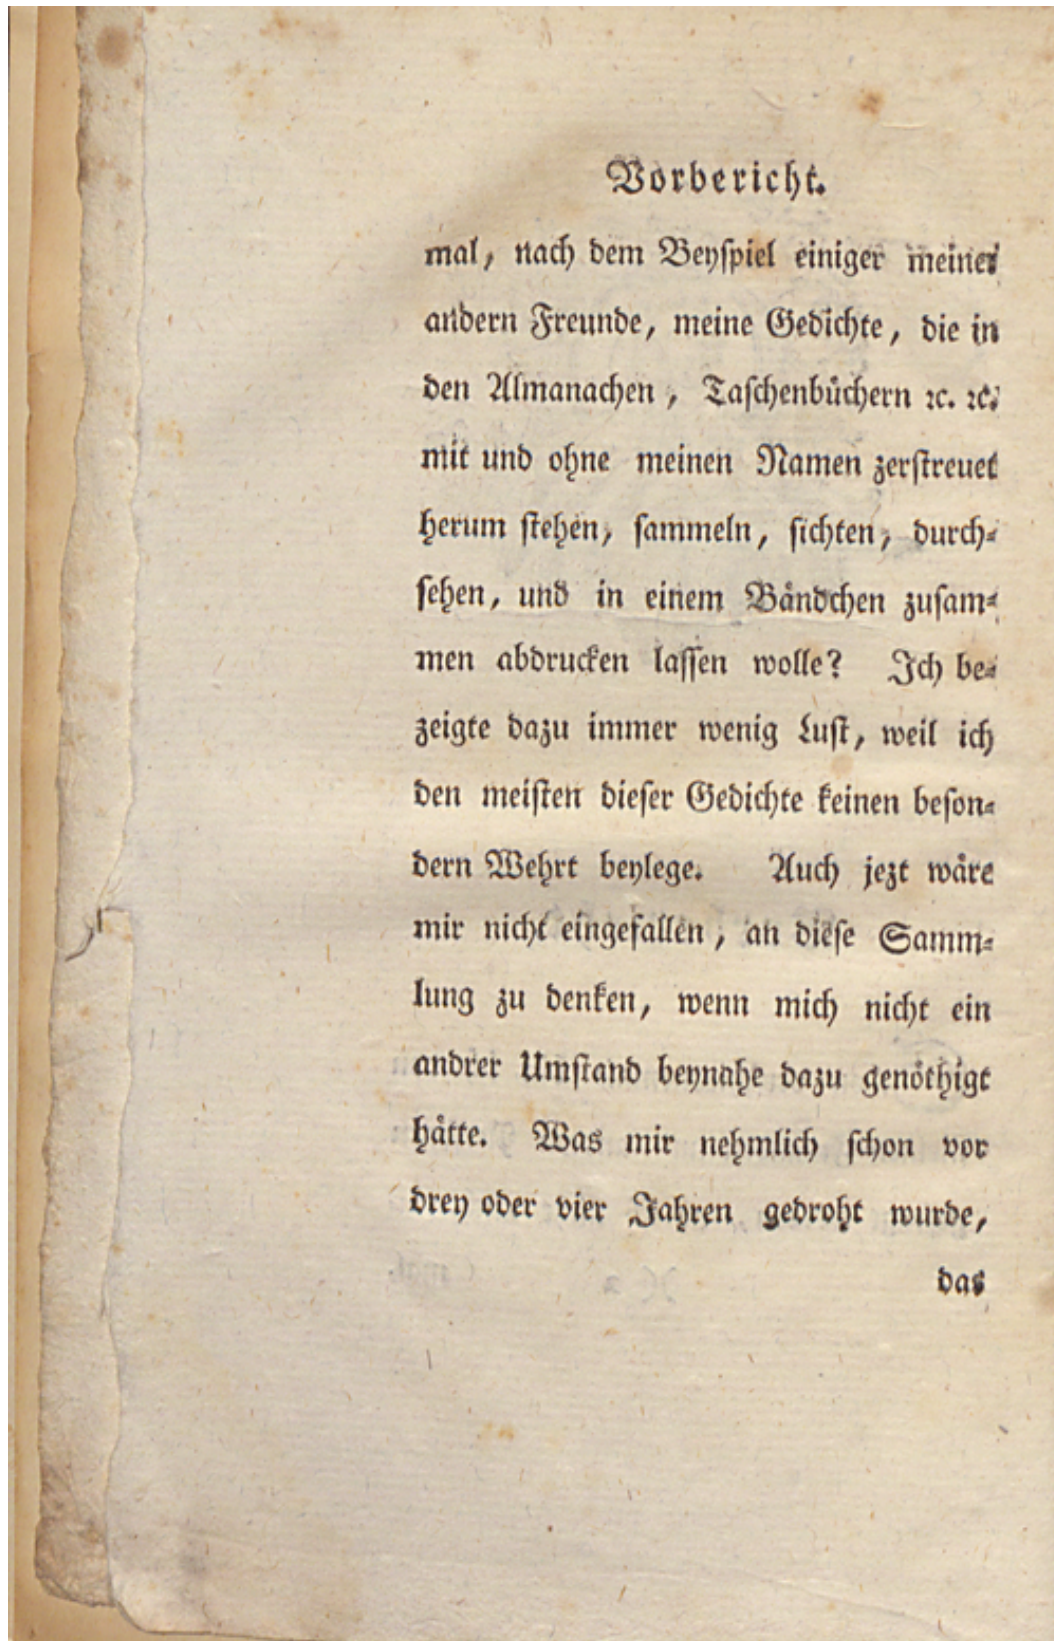 Vorbericht.
mal, nach dem Beyspiel einiger meiner
andern Freunde, meine Gedichte, die in
den Almanachen, Taschenbüchern ꝛc. ꝛc.
mit und ohne meinen Namen zerstreuet
herum stehen, sammeln, sichten, durch-
sehen, und in einem Bändchen zusam-
men abdrucken lassen wolle? Ich be-
zeigte dazu immer wenig Lust, weil ich
den meisten dieser Gedichte keinen beson-
dern Wehrt beylege. Auch jezt wäre
mir nicht eingefallen, an diese Samm-
lung zu denken, wenn mich nicht ein
andrer Umstand beynahe dazu genöthigt
hätte. Was mir nehmlich schon vor
drey oder vier Jahren gedroht wurde,
das